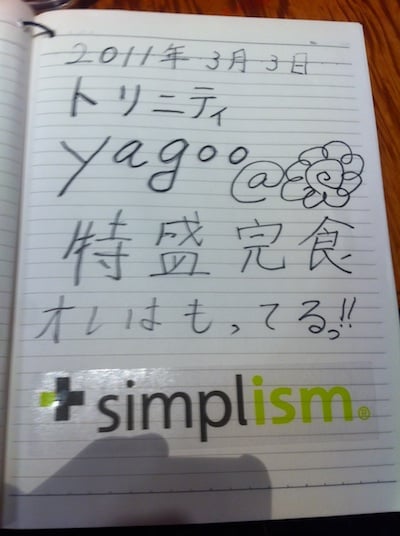 2011年 3月3日
トリニティ
yagoo@
特盛完食
オレはもってるっ!!
simplism®